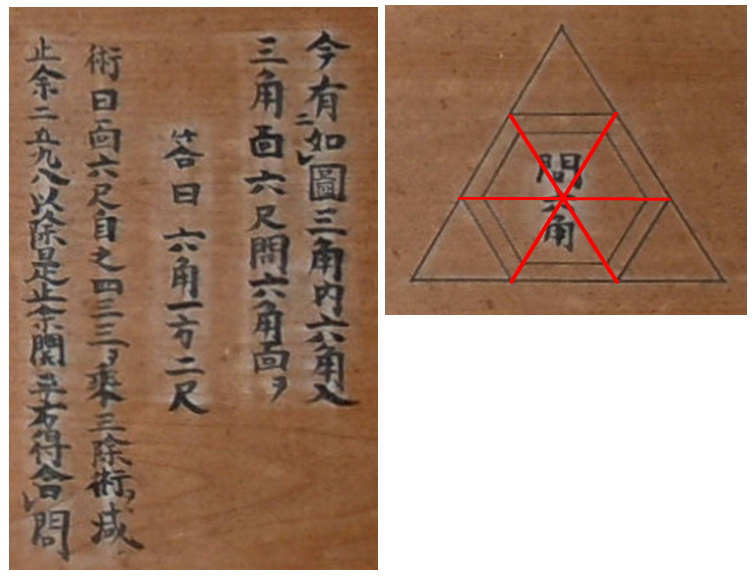 今有如ニ圖三角内六角入
三角面六尺問六角面ヲ
答曰六角一方二尺
術曰面六尺自之四三三ヲ乗三除術ヲ減
止余二五九八以除是止余開平方得合問
問六角